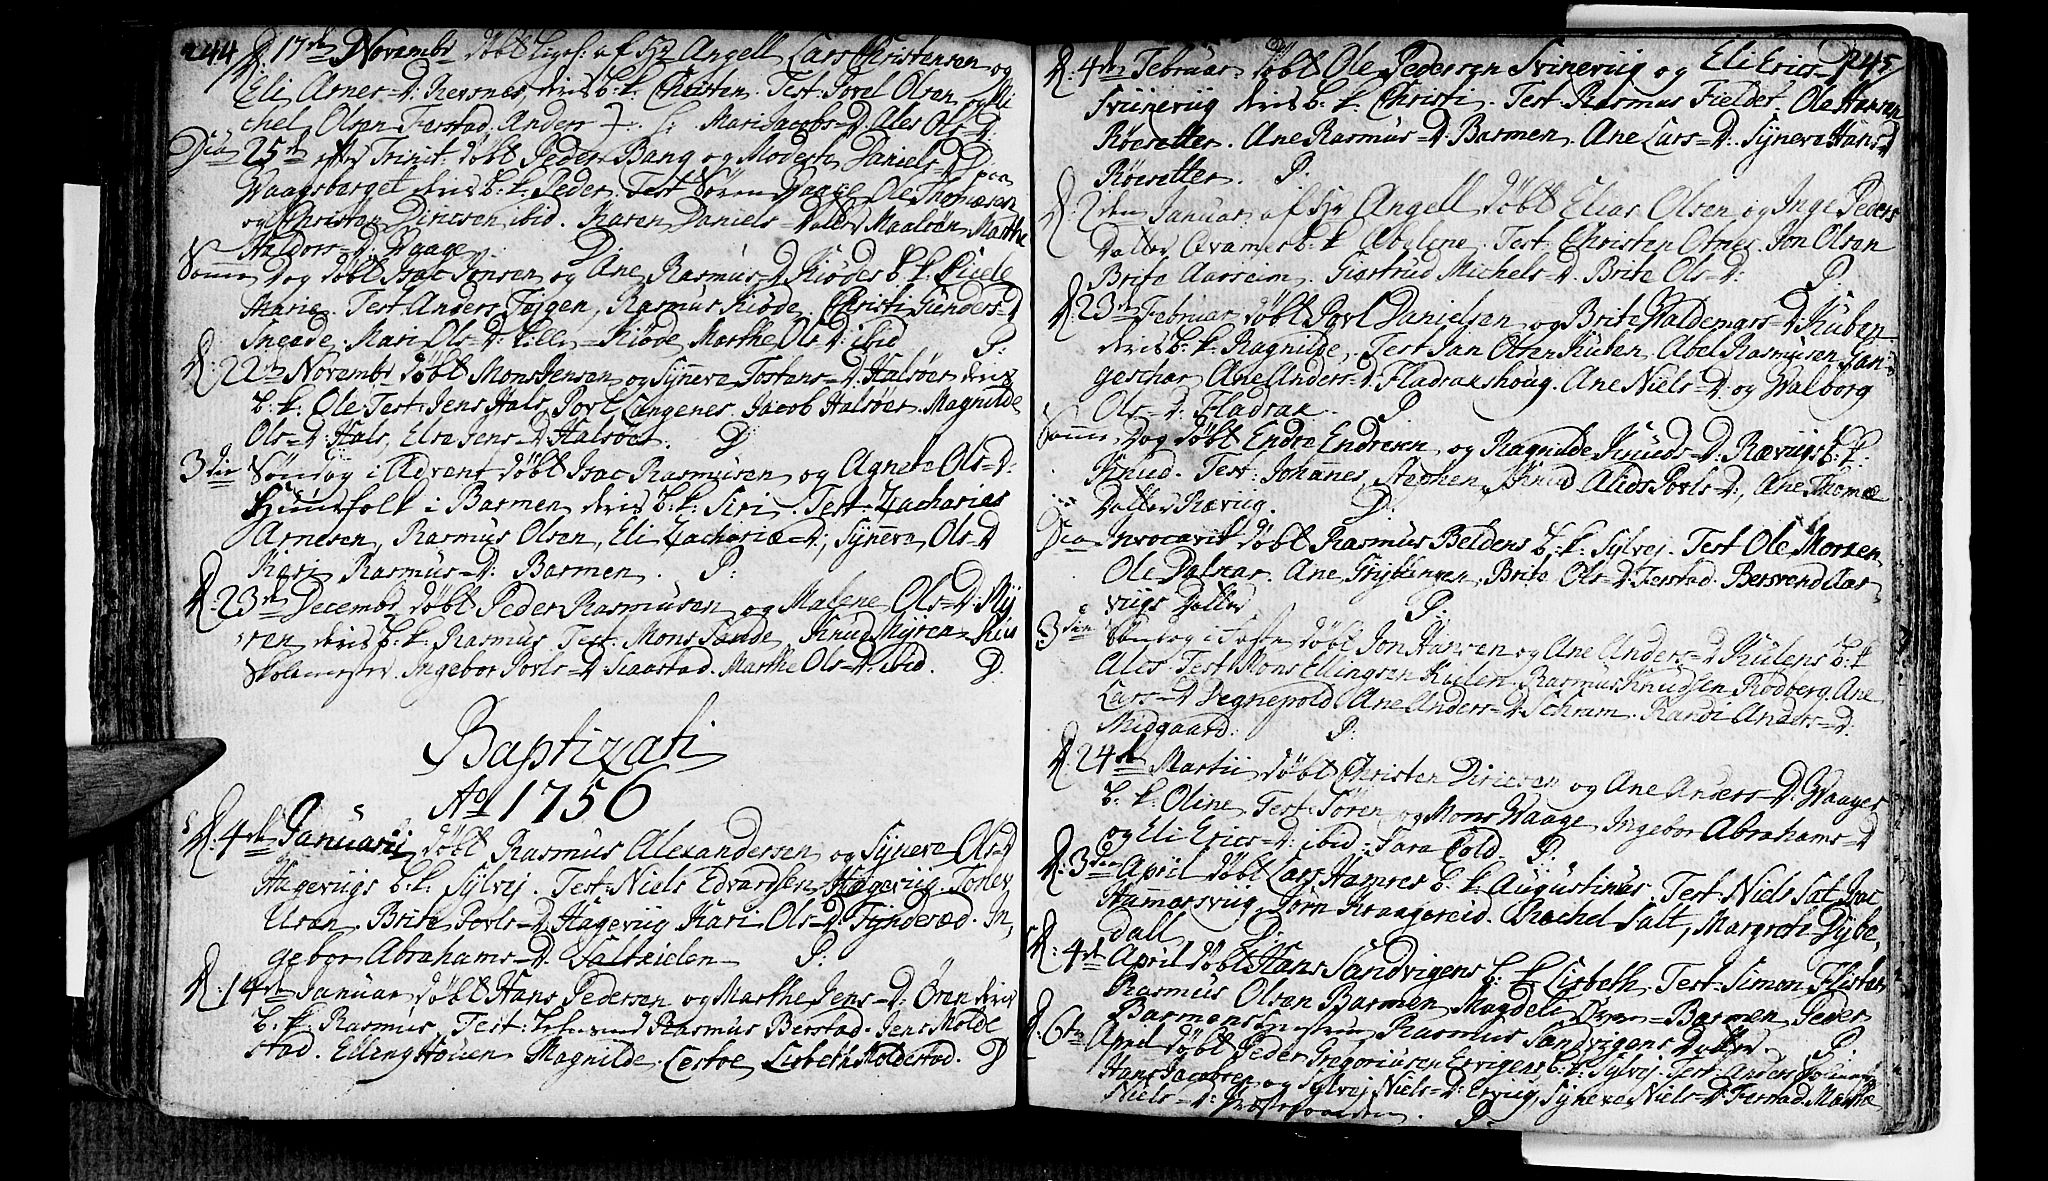 244
D: 17de Novembr døbt ligel. af Hr Angell Lars Christensen og
Eli Arnes=D. Revsnes, deris b. k. Christen. Test. Povel Olsen og Mi
chel Olsen Ferstad Anders Mari Jacobs=D. Ales Ols=D.
Dca 25de efter Trinit: døbt Peder Bang og Modesta Daniels=D paa
Waagsberget deris b. k. Peder. Test Søren Vaage Ole Thomæsen
og Christen Diricsen ibid. Karen Daniels=Dotter Maaløen Marthe
Haldors=D. Waage. D.
Samme Dag døbt Isac Jonsen og Ane Rasmus=D. Kiødes b. k. Giæle
Marie. Test. Anders Fosgen, Rasmus Kiøde. Christi Gunders=D
Sneade. Mari Ols=D. Lille=Kiøde, Marthe Ols=D. ibid P:
D: 22de Novembr døbt Mons Jensen og Synneve Tostens=D. Halsøer deris
b. k. Ole Test. Jens Hals, Povl Langenes. Jacob Halsøer. Magnilde
Ols=D. Hals, Else Jens=D. Halsøer. D
3die Søndag i Advent døbt Isac Rasmusen og Agnete Ols=D:
Huusfolk i Barmen deris b. k. Siri. Test. Zacharias
Arnesen, Rasmus Olsen, Eli Zachariæ=D., Synneve Ols=D
Kari Rasmus=D. Barmen. P:
D. 23de Decembr døbt Peder Rasmusen og Malene Ols=D. My
ren deris b. k. Rasmus Test. Mons Sande, Knud Myren
Skolemester. Ingebor Povls=D. Taastad. Marthe Ols=D. ibid. D.
Baptizati
Ao 1756
D. 4de Januarii døbt Rasmus Alexandersen og Syneve Ols=D
Hagevigs b. k. Sylvej. Test. Niels Edvardsen Hagevig. Torlev
Uran. Brite Povls=D. Hagevig Kari Ols=D. Tynderød. In,
gebor Abrahams=D. Saltkielen P:
D. 14de Januar døbt Hans Pedersen og Marthe Jens=D: Øren deris
b. k. Rasmus. Test: Rasmus Berstad. Jens Molde
stad. Elling Houen Magnilde Lestoe, Lisbeth Moldestad. D
245
D. 4de Februar døbt Ole Pedersen Svinevig og Eli Erics=D.
Sviinevig deris b. k. Christi. Test. Rasmus Fielde. Ole Hansen
Røesetter. Ane Rasmus=D. Barmen. Ane Lars=D. Syneve Hans=D
Røesetter. P.
D. 2den Januar af Hr Angell døbt Elias Olsen og Inge Peders
Datter Aramers b. k. Abelene. Test. Christen Otnes, Jon Olsen
Brite Aarseim. Giertrud Michels=D. Brite Ols=D: P.
D: 23de Februar døbt Povl Danielsen og Brite Waldemars=D. Kuben
deris b. k. Ragnilde, Test Jan Olsen Kuben, Abel Rasmusen Lan=
geschar Ane Anders=D. Fladrakshoug. Ane Niels=D. og Walborg
Ols=D. Fladrak. P
Samme Dag døbt Endre Endresen og Ragnilde Knuds=D. Rævigs b. k.
Knud. Test: Johannes, Stephen, Knud Alids Povls=D., Ane Thomæ
Datter Rævig. D.
Dca Invocavit døbt Rasmus Beldens b. k. Sylvej. Test Ole Morken
Ole Dalskar. Ane Brite Ols=D. Ferstad. Berevend Aar
vigs Datter P.
3die Søndag i Faste døbt Jon Hansen og Ane Anders=D. Kulens b. k
Ales Test. Mons Ellingsen Kulen. Rasmus Knudsen Rodberg. Ane
Lars=D. Degnepold Ane Anders=D. Schram. Randi Anders=D.
Midgaard. P:
D. 24de Martii døbt Christen Diricsen og Ane Anders=D. Waages
b. k. Oline Test. Søren og Mons Waage, Ingebor Abrahams=D
og Eli Erics=D. ibid. Sara Cold. P:
D. 3die April døbt Lars Hamres b. k. Augustinus. Test. Niels Salt, Isac
Hammersvig, Jørn Kraagereid. Rachel Salt, Margrete Dybe,
dall D.
D. 4de April døbt Hans Sandvigens b. k. Lisbeth. Test. Simon Flister
Rasmus Olsen Barmen, Magdeli Barmen, Peder
Barmens Rasmus Sandvigens Datter. P.
D. 6te April døbt Peder Gregoriusen Ervigens b. k. Sylvej. Test. Anders
Hans Jacobsen og Sylvej Niels=D. Ervig, Syneve Niels=D. Ferstad. Marthe
Niels=D. P.